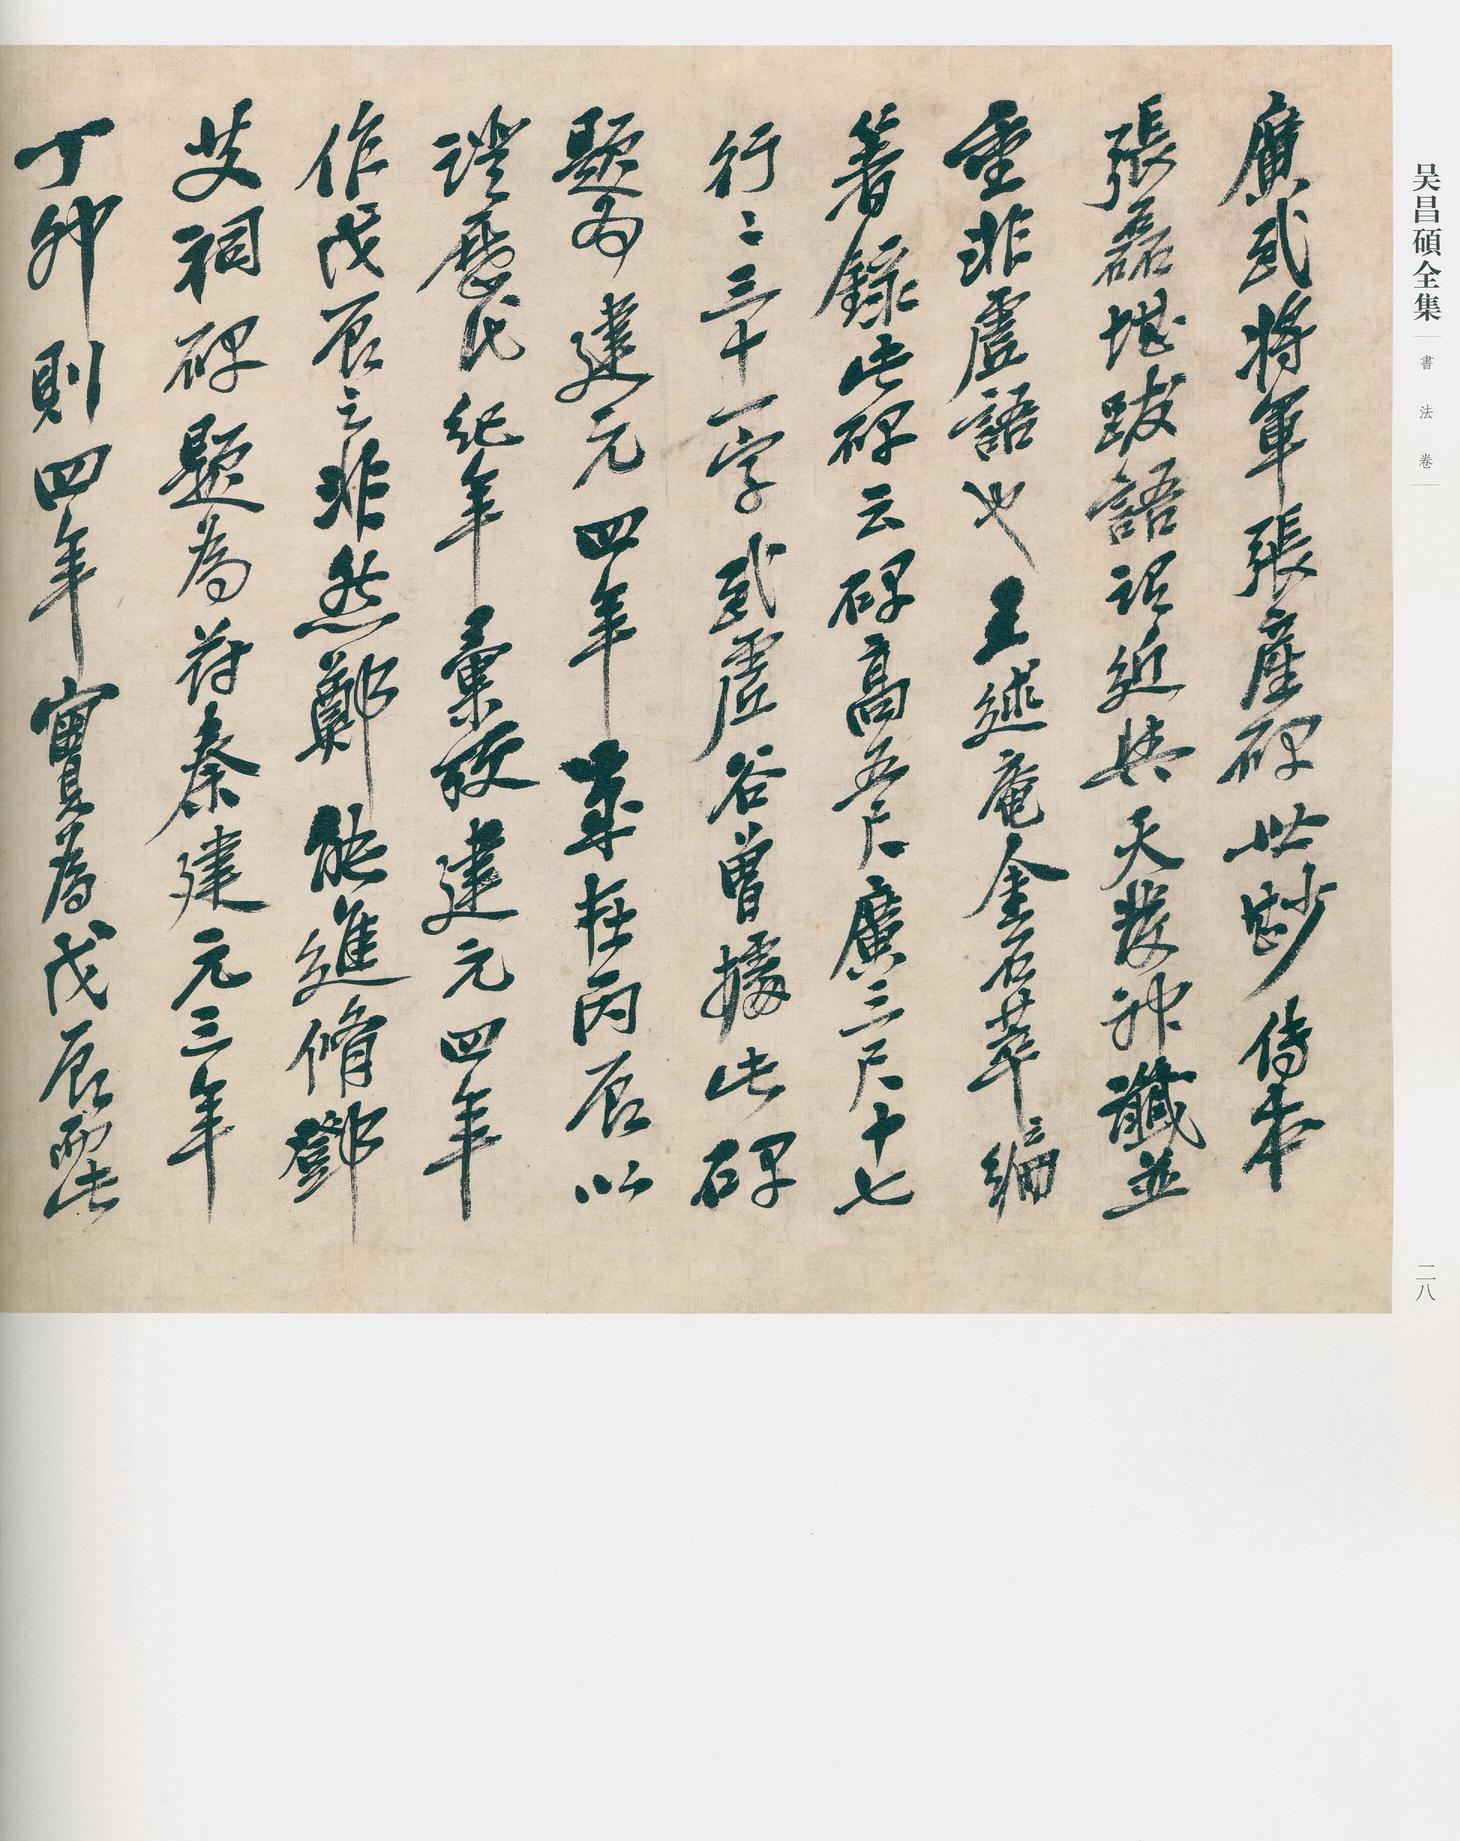 廣武將軍張產碑世尠傳本
張磊堪跋語謂近與天發神讖並
重非虛語也王述庵金石萃編
著錄此碑云碑高五尺廣三尺十七
行二三十一字武虛谷曾據此碑
題為建元四年歲在丙辰以
證歷代紀年彙攷建元四年
作戊辰之非然鄭能進脩鄧
艾祠碑題為苻秦建元三年
丁卯則四年實為戊辰歟此
吴昌碩全集
書法卷
二八